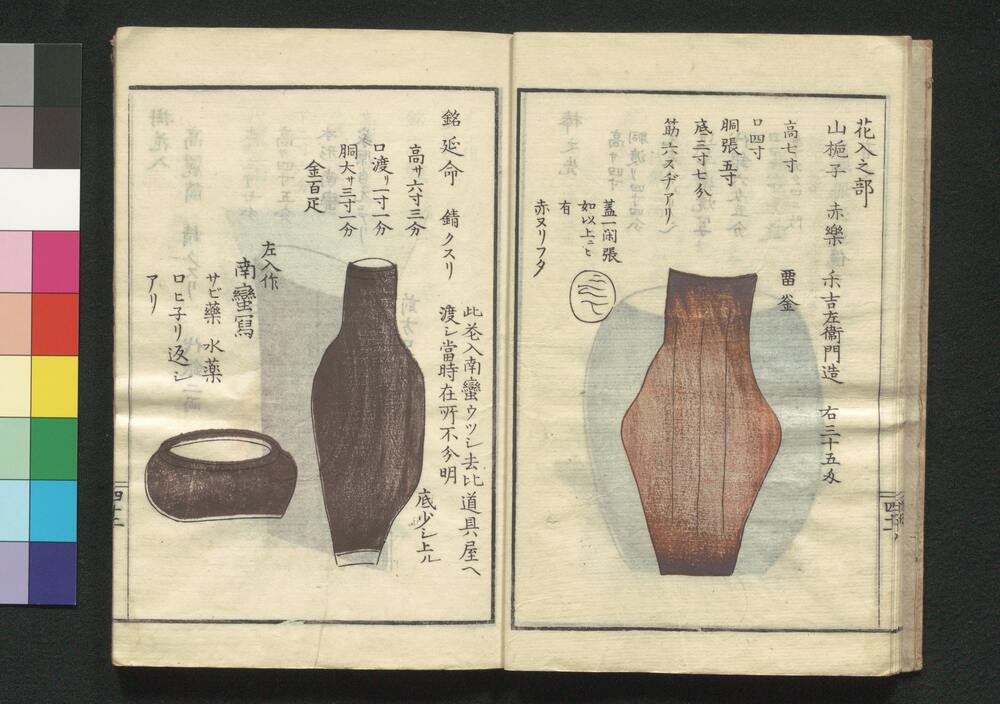 花入之部
山梔子　赤樂　禾吉左衞門造　右三十五匁
高七寸
口四寸
胴張五寸
底三寸七分
筋六スヂアリ
雷釜
蓋一閑張
如以上ニヒ
有
赤ヌリフタ
四十二
銘延命　錆クスリ
高サ六寸三分
口渡リ一寸一分
胴大サ三寸一分
金百疋
此花入南蠻ウツシ去比道具屋ヘ
渡シ當時在所不分明
底少シ上ル
左入作
南蠻寫
サビ藥　水藥
口ヒ子リ返シ
アリ